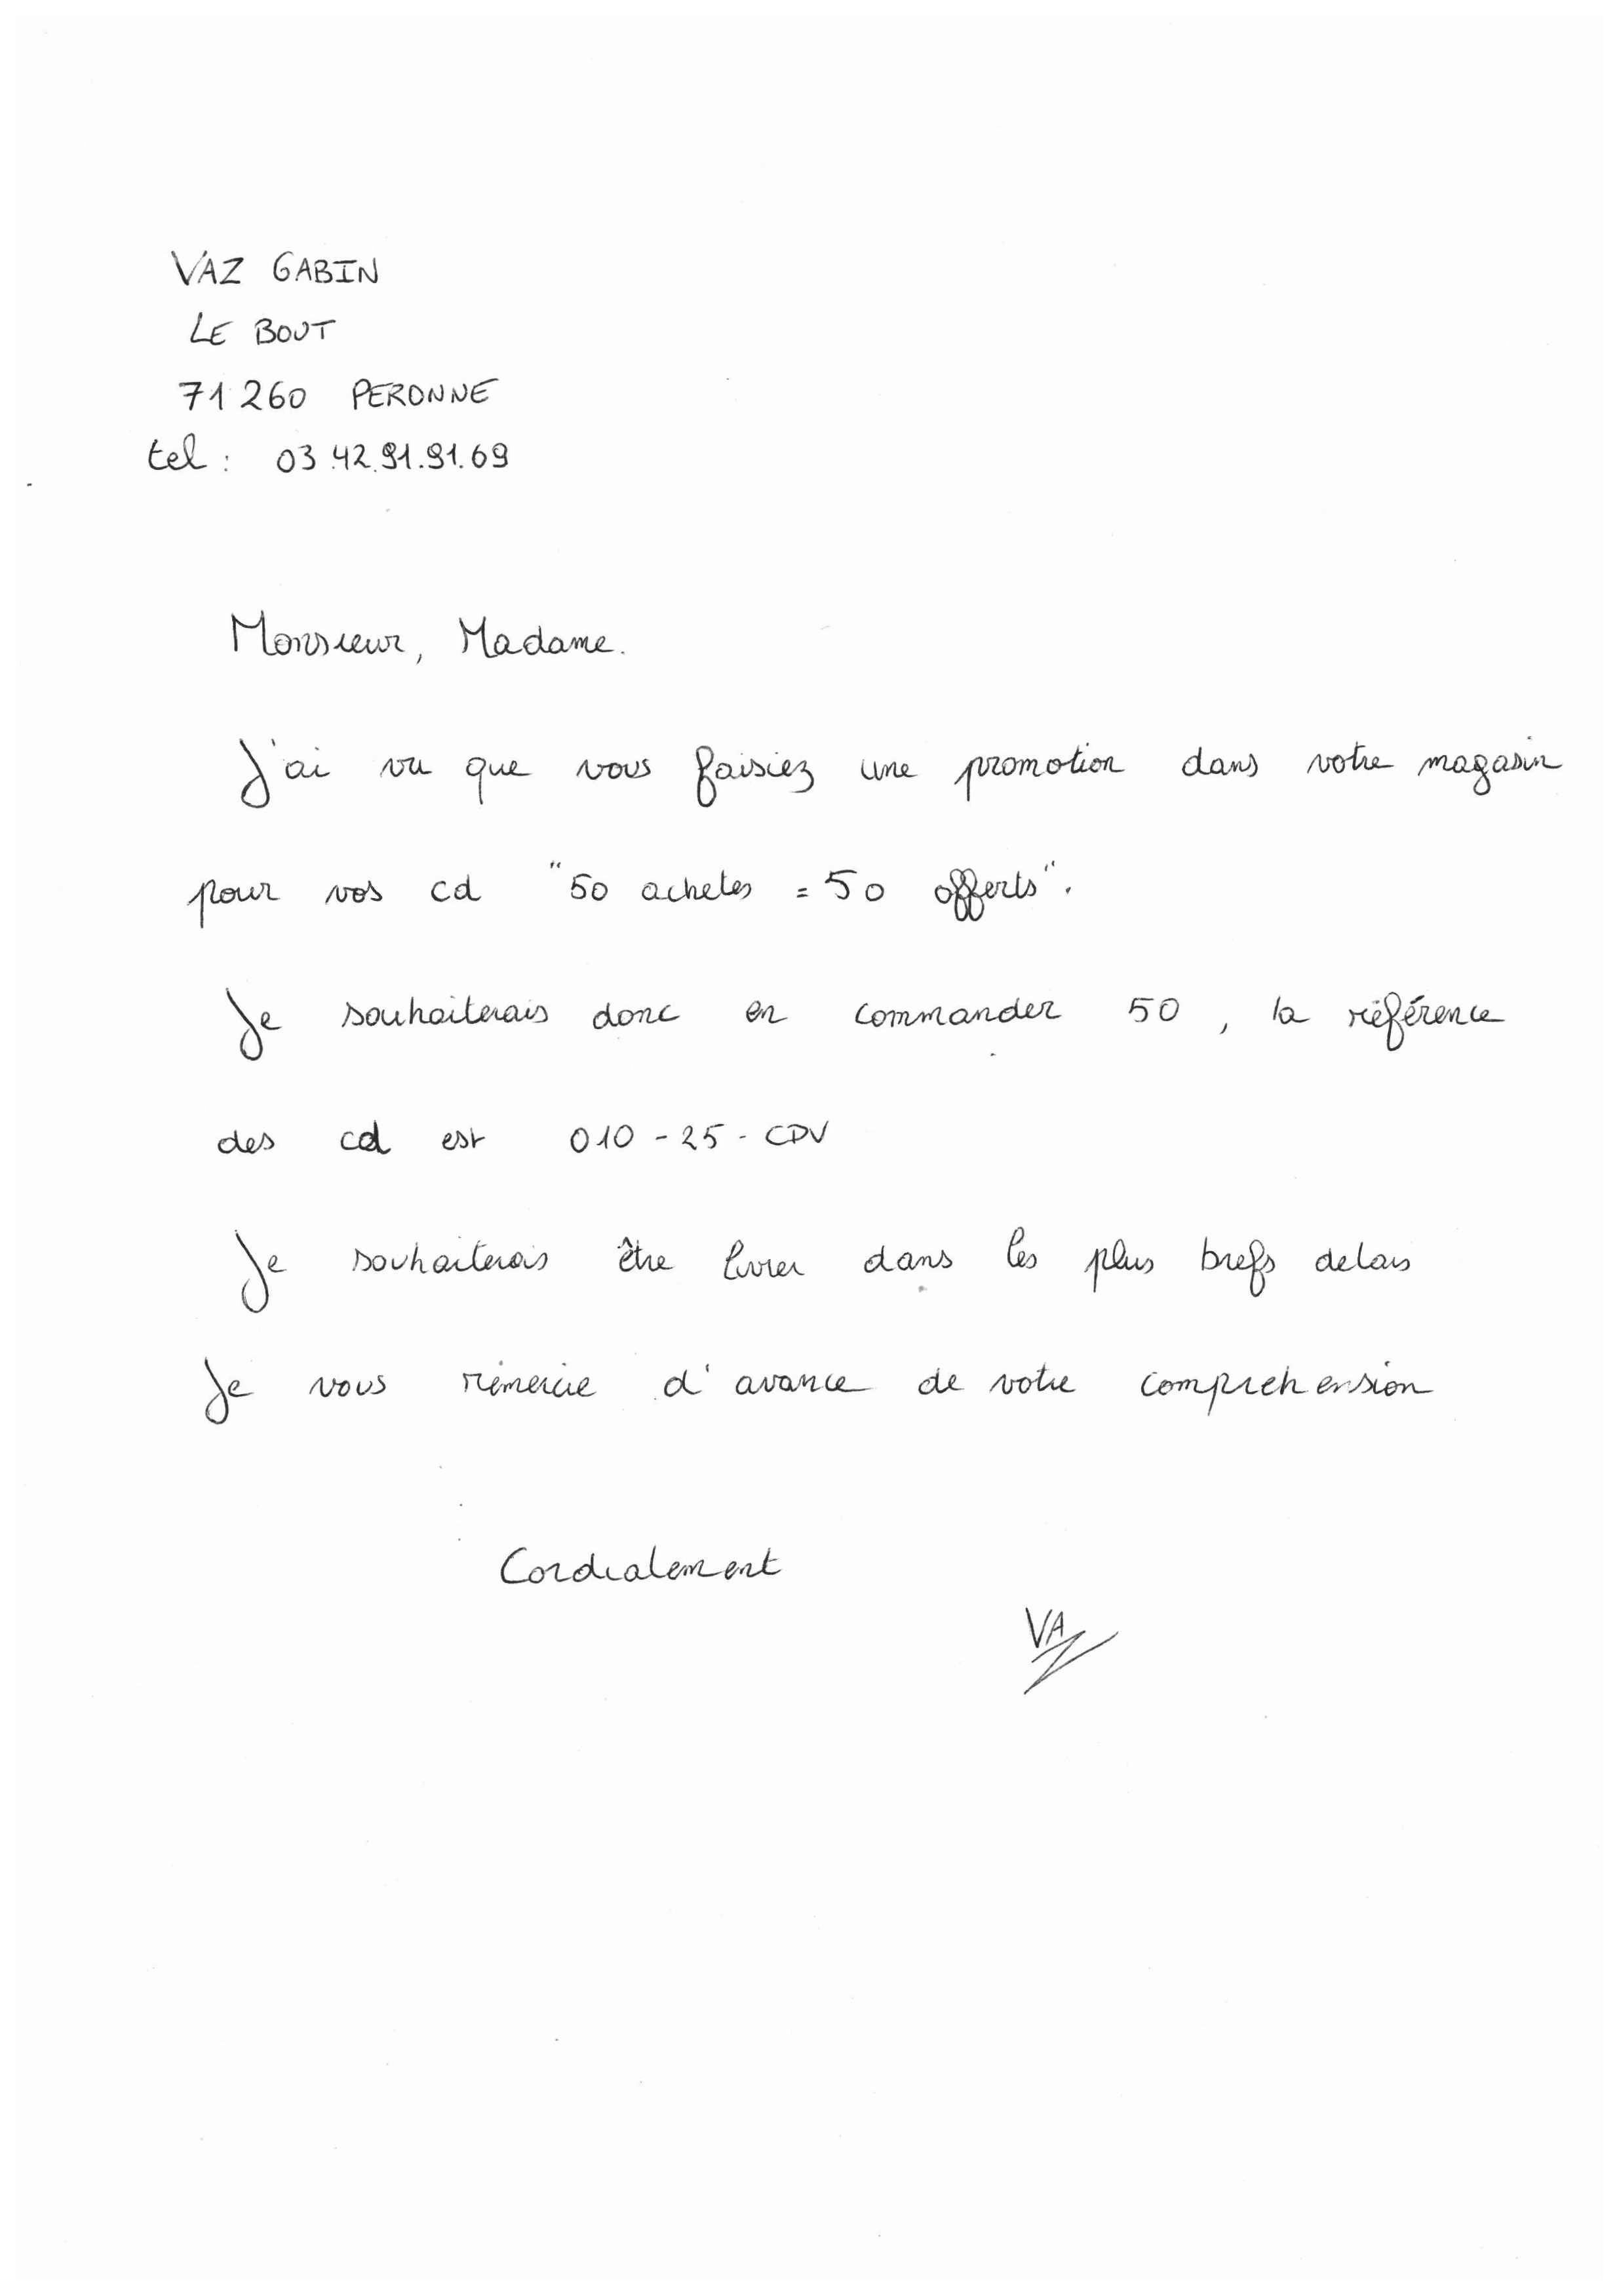 VAZ GABIN
LE BOUT
71260 PERONNE
tel : 03.42.91.91.69
Monsieur, Madame.
J'ai vu que vous faisiez une promotion dans votre magasin
pour vos cd "50 achetes = 50 offerts".
Je souhaiterais donc en commander 50, la référence
des cd est 010-25-CDV
Je souhaiterais être livrer dans les plus brefs delais
Je vous remercie d'avance de votre comprehension
Cordialement
VAZ